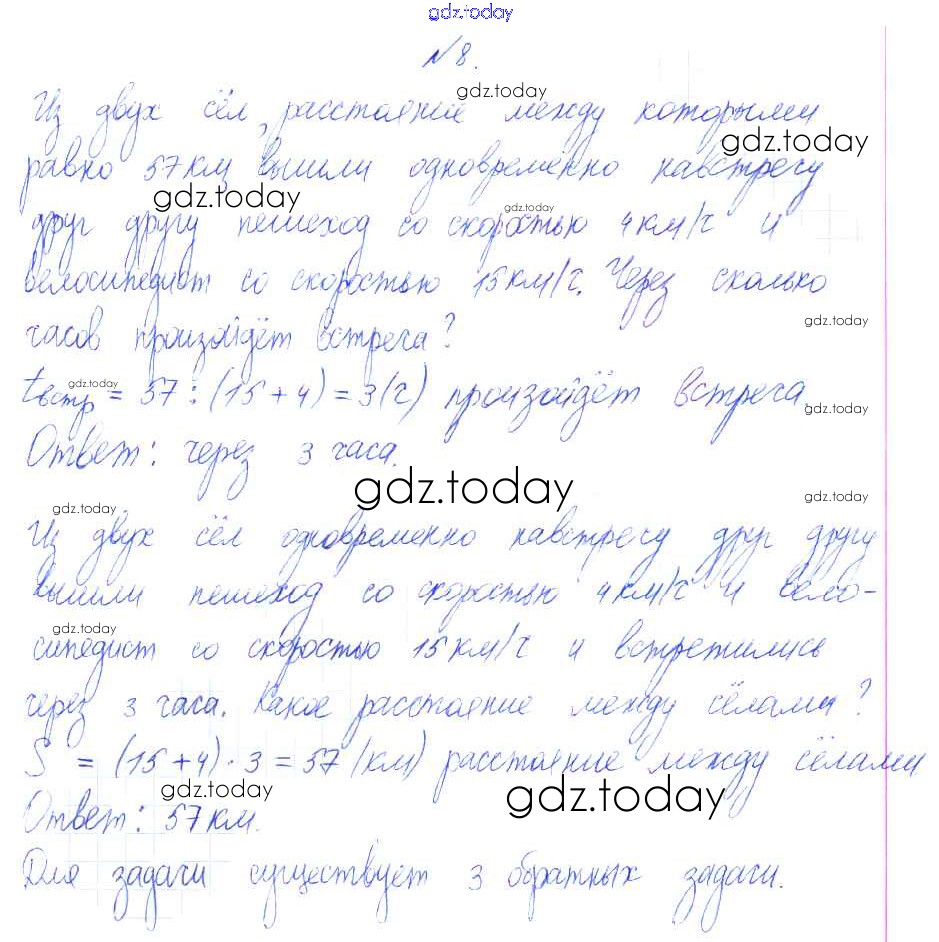 gdz.today
№8.
gdz.today
Из двух сёл, расстояние между которыми
gdz.today
равно 57 км, вышли одновременно навстречу
gdz.today
gdz.today
друг другу пешеход со скоростью 4 км/ч и
велосипедист со скоростью 15 км/ч. Через сколько
gdz.today
часов произойдёт встреча?
gdz.today
tвстр = 57 : (15 + 4) = 3 (ч) произойдёт встреча.
gdz.today
Ответ: через 3 часа.
gdz.today
gdz.today
gdz.today
Из двух сёл одновременно навстречу друг другу
вышли пешеход со скоростью 4 км/ч и вело-
gdz.today
сипедист со скоростью 15 км/ч и встретились
через 3 часа. Какое расстояние между сёлами?
S = (15 + 4) · 3 = 57 (км) расстояние между сёлами
gdz.today
gdz.today
Ответ: 57 км.
Для задачи существует 3 обратных задачи.